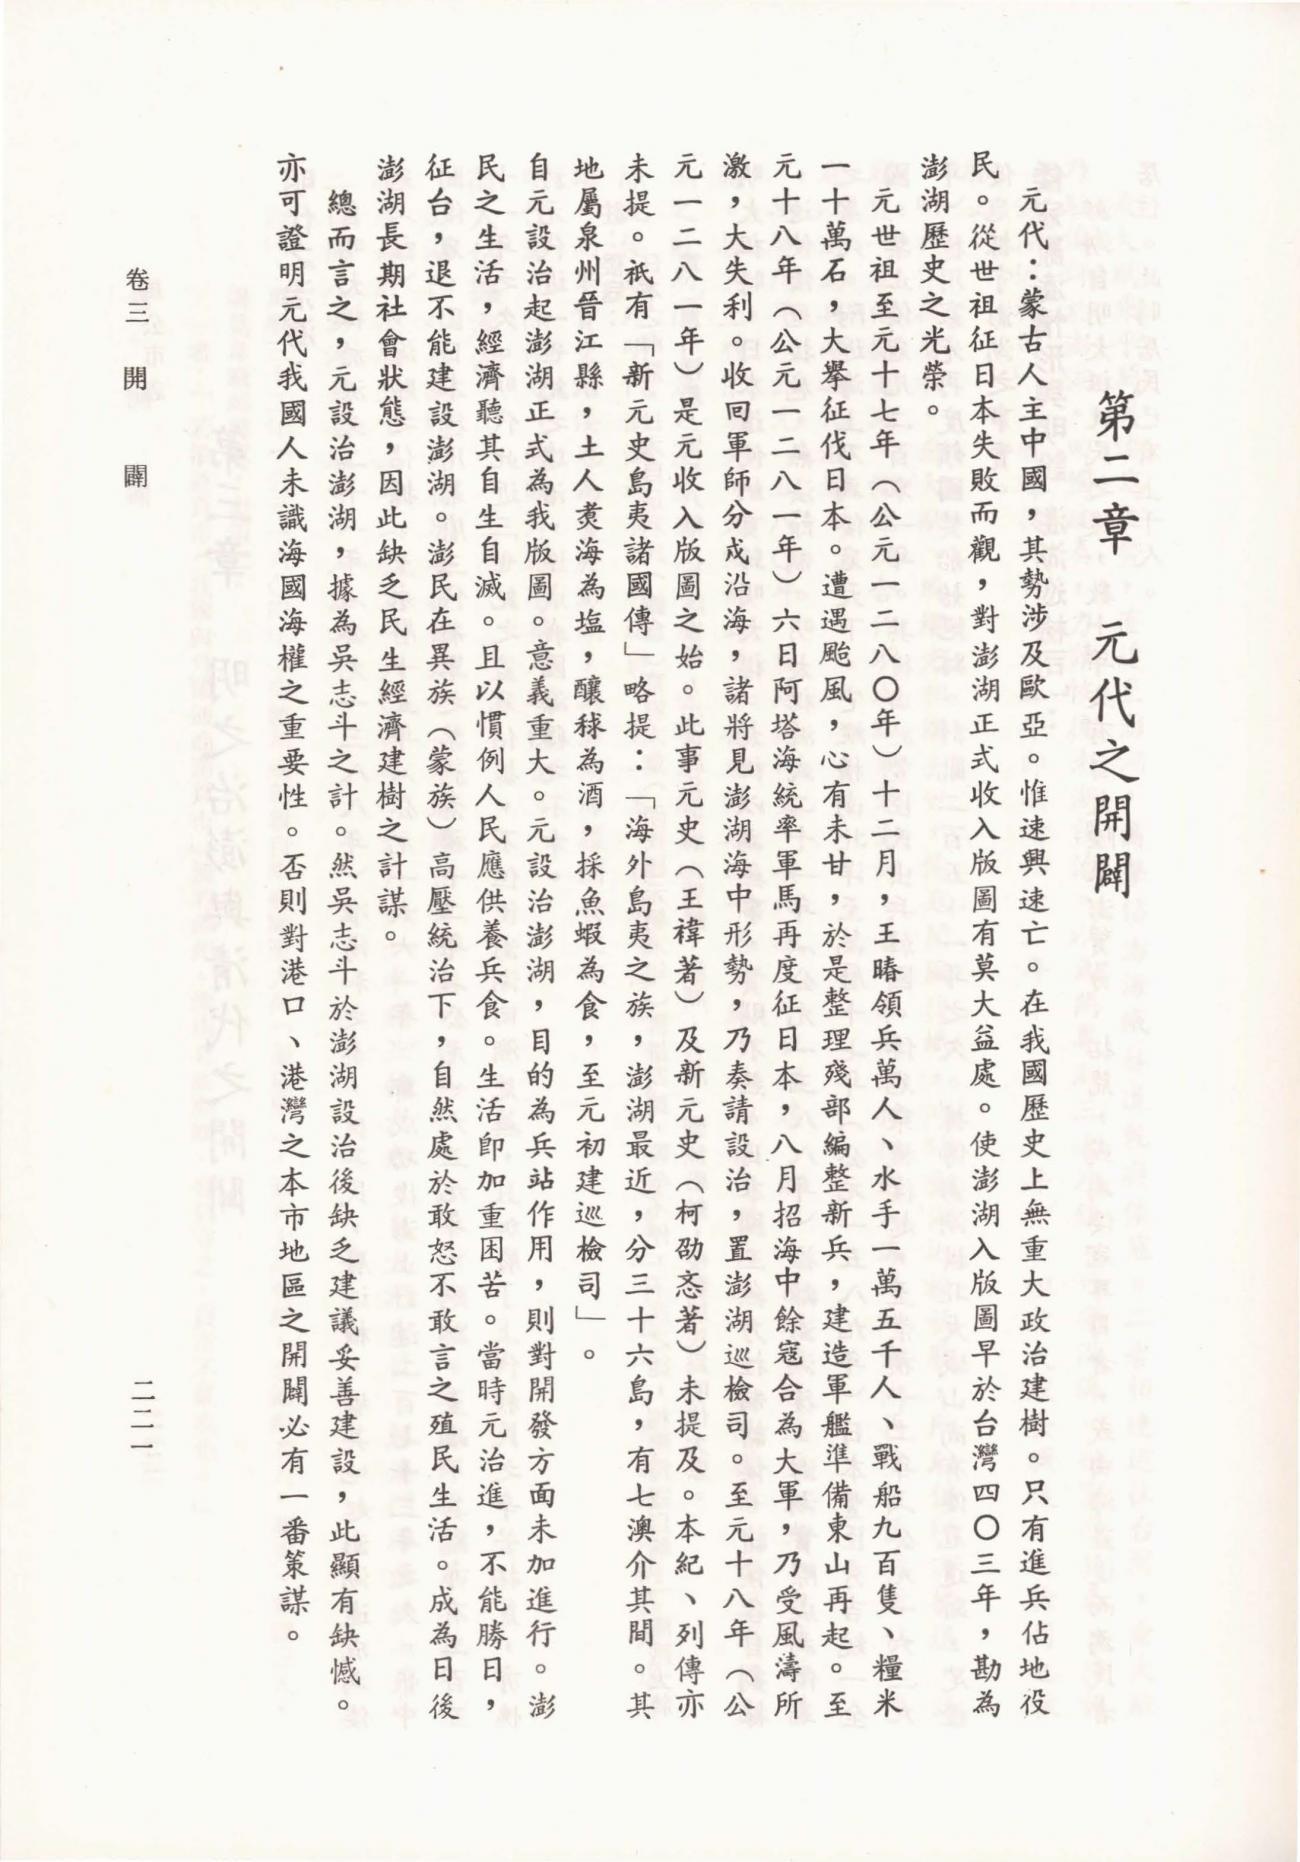 第二章　元代之開闢
元代：蒙古人主中國，其勢涉及歐亞。惟速興速亡。在我國歷史上無重大政治建樹。只有進兵佔地役
民。從世祖征日本失敗而觀，對澎湖正式收入版圖有莫大益處。使澎湖入版圖早於台灣四〇三年，勘為
澎湖歷史之光榮。
元世祖至元十七年（公元一二八〇年）十二月，王賰領兵萬人、水手一萬五千人、戰船九百隻、糧米
一十萬石，大舉征伐日本。遭遇颱風，心有未甘，於是整理殘部編整新兵，建造軍艦準備東山再起。至
元十八年（公元一二八一年）六日阿塔海統率軍馬再度征日本，八月招海中餘寇合為大軍，乃受風濤所
激，大失利。收回軍師分成沿海，諸將見澎湖海中形勢，乃奏請設治，置澎湖巡檢司。至元十八年（公
元一二八一年）是元收入版圖之始。此事元史（王褘著）及新元史（柯劭忞著）未提及。本紀、列傳亦
未提。祇有「新元史島夷諸國傳」略提：「海外島夷之族，澎湖最近，分三十六島，有七澳介其間。其
地屬泉州晉江縣，土人煑海為塩，釀秫為酒，採魚蝦為食，至元初建巡檢司」。
自元設治起澎湖正式為我版圖。意義重大。元設治澎湖，目的為兵站作用，則對開發方面未加進行。澎
民之生活，經濟聽其自生自滅。且以慣例人民應供養兵食。生活即加重困苦。當時元治進，不能勝日，
征台，退不能建設澎湖。澎民在異族（蒙族）高壓統治下，自然處於敢怒不敢言之殖民生活。成為日後
澎湖長期社會狀態，因此缺乏民生經濟建樹之計謀。
總而言之，元設治澎湖，據為吳志斗之計。然吳志斗於澎湖設治後缺乏建議妥善建設，此顯有缺憾。
亦可證明元代我國人未識海國海權之重要性。否則對港口、港灣之本市地區之開闢必有一番策謀。
卷三　開　闢
二二一